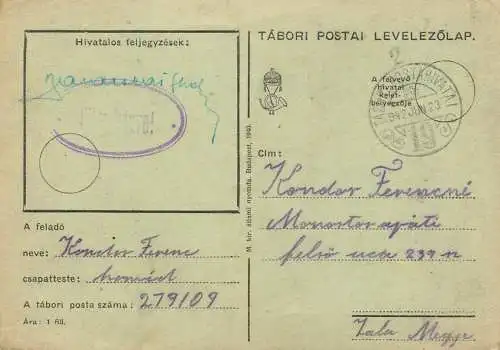 Hivatalos feljegyzések:
TÁBORI POSTAI LEVELEZŐLAP.
A felvevő
hivatal
kelet-
bélyegzője
M. kir. állami nyomda, Budapest, 1940.
Cím:
Kondor Ferencné
Monostor apáti
felső ucca 239 n
Zala Megye
A feladó
neve: Kondor Ferenc
csapatteste: honvéd
A tábori posta száma: 279/09
Ára: 1 fill.